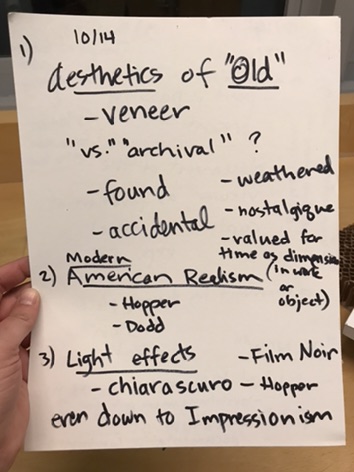 10/14
1) aesthetics of "Old"
- veneer
"vs." "archival" ?
- found
- accidental
- weathered
- nostalgique
- valued for
time as dimension
(in work
or
object)
Modern
2) American Realism
- Hopper
- Dodd
3) Light effects - Film Noir
- chiaroscuro - Hopper
even down to Impressionism